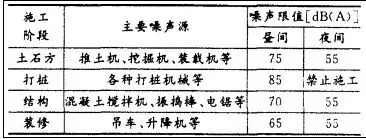 施工阶段 主要噪声源 噪声限值[dB(A)]
昼间 夜间
土石方 推土机、挖掘机、装载机等 75 55
打桩 各种打桩机械等 85 禁止施工
结构 混凝土搅拌机、振捣棒、电锯等 70 55
装修 吊车、升降机等 65 55